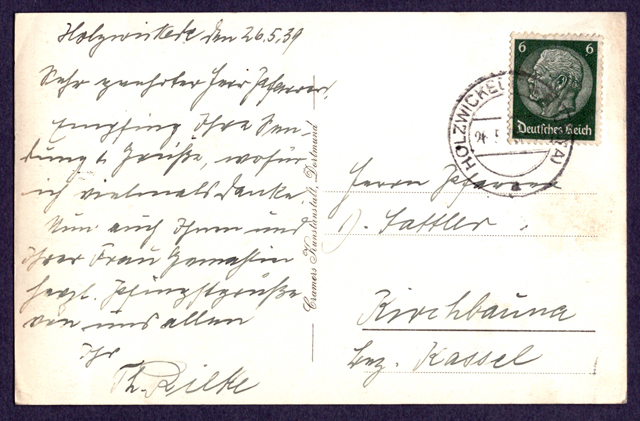 Holzwickede den 26.5.39
Sehr geehrter Herr Pfarrer!
Empfing Ihre Sen-
dung u. Grüße, wofür
ich vielmals danke.
Nun auch Ihnen und
Ihrer Frau Gemahlin
herzl. Pfingstgrüße
von uns allen
Ihr
Th. Rilke
Cramers Kunstanstalt, Dortmund
6 6
Deutsches Reich
HOLZWICKEDE
26.5
Herrn Pfarrer
Sattler
Kirchbauna
Bez. Kassel